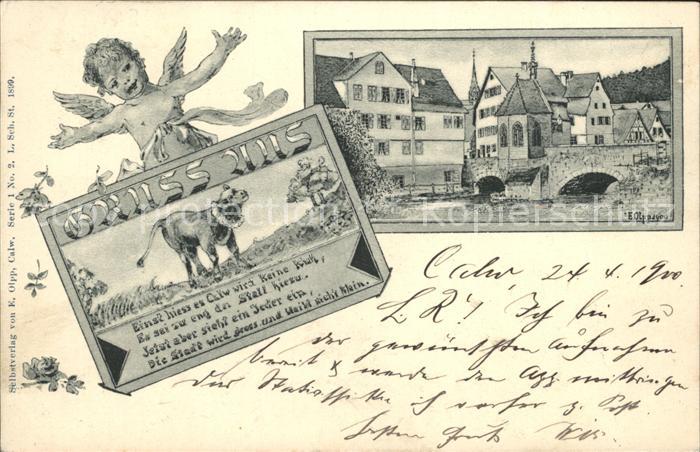 Selbstverlag von E. Olpp, Calw. Serie I No. 2. L. Sch. St. 1899.
GRUSS AUS
Einst hiess es Calw wird keine Kuh,
Es sei zu eng der Stall hiezu.
Jetzt aber sieht ein Jeder ein,
Die Stadt wird gross und bleibt nicht klein.
E. Olpp
Calw, 24. 4. 1900.
L. R.! Ich bin zu
der gewünschten Aufnahme
bereit & werde den App. mitbringen
das ich vorher z. Post.
Besten Gruß
www.ansichtskarten-center.de